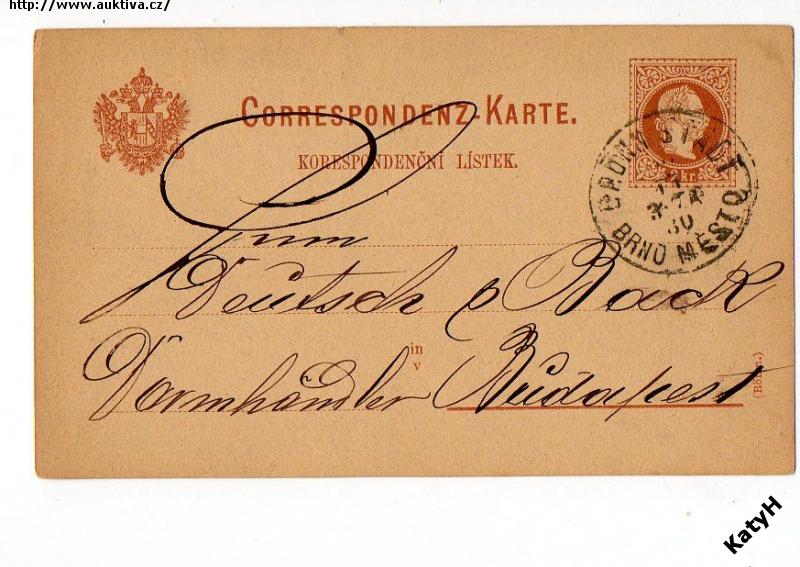 http://www.auktiva.cz/
CORRESPONDENZ-KARTE.
KORESPONDENČNÍ LÍSTEK.
2 kr.
BRÜNN STADT
80
BRNO MĚSTO
Deutsch & Back
in
v
Budapest
(Böhm.)
KatyH